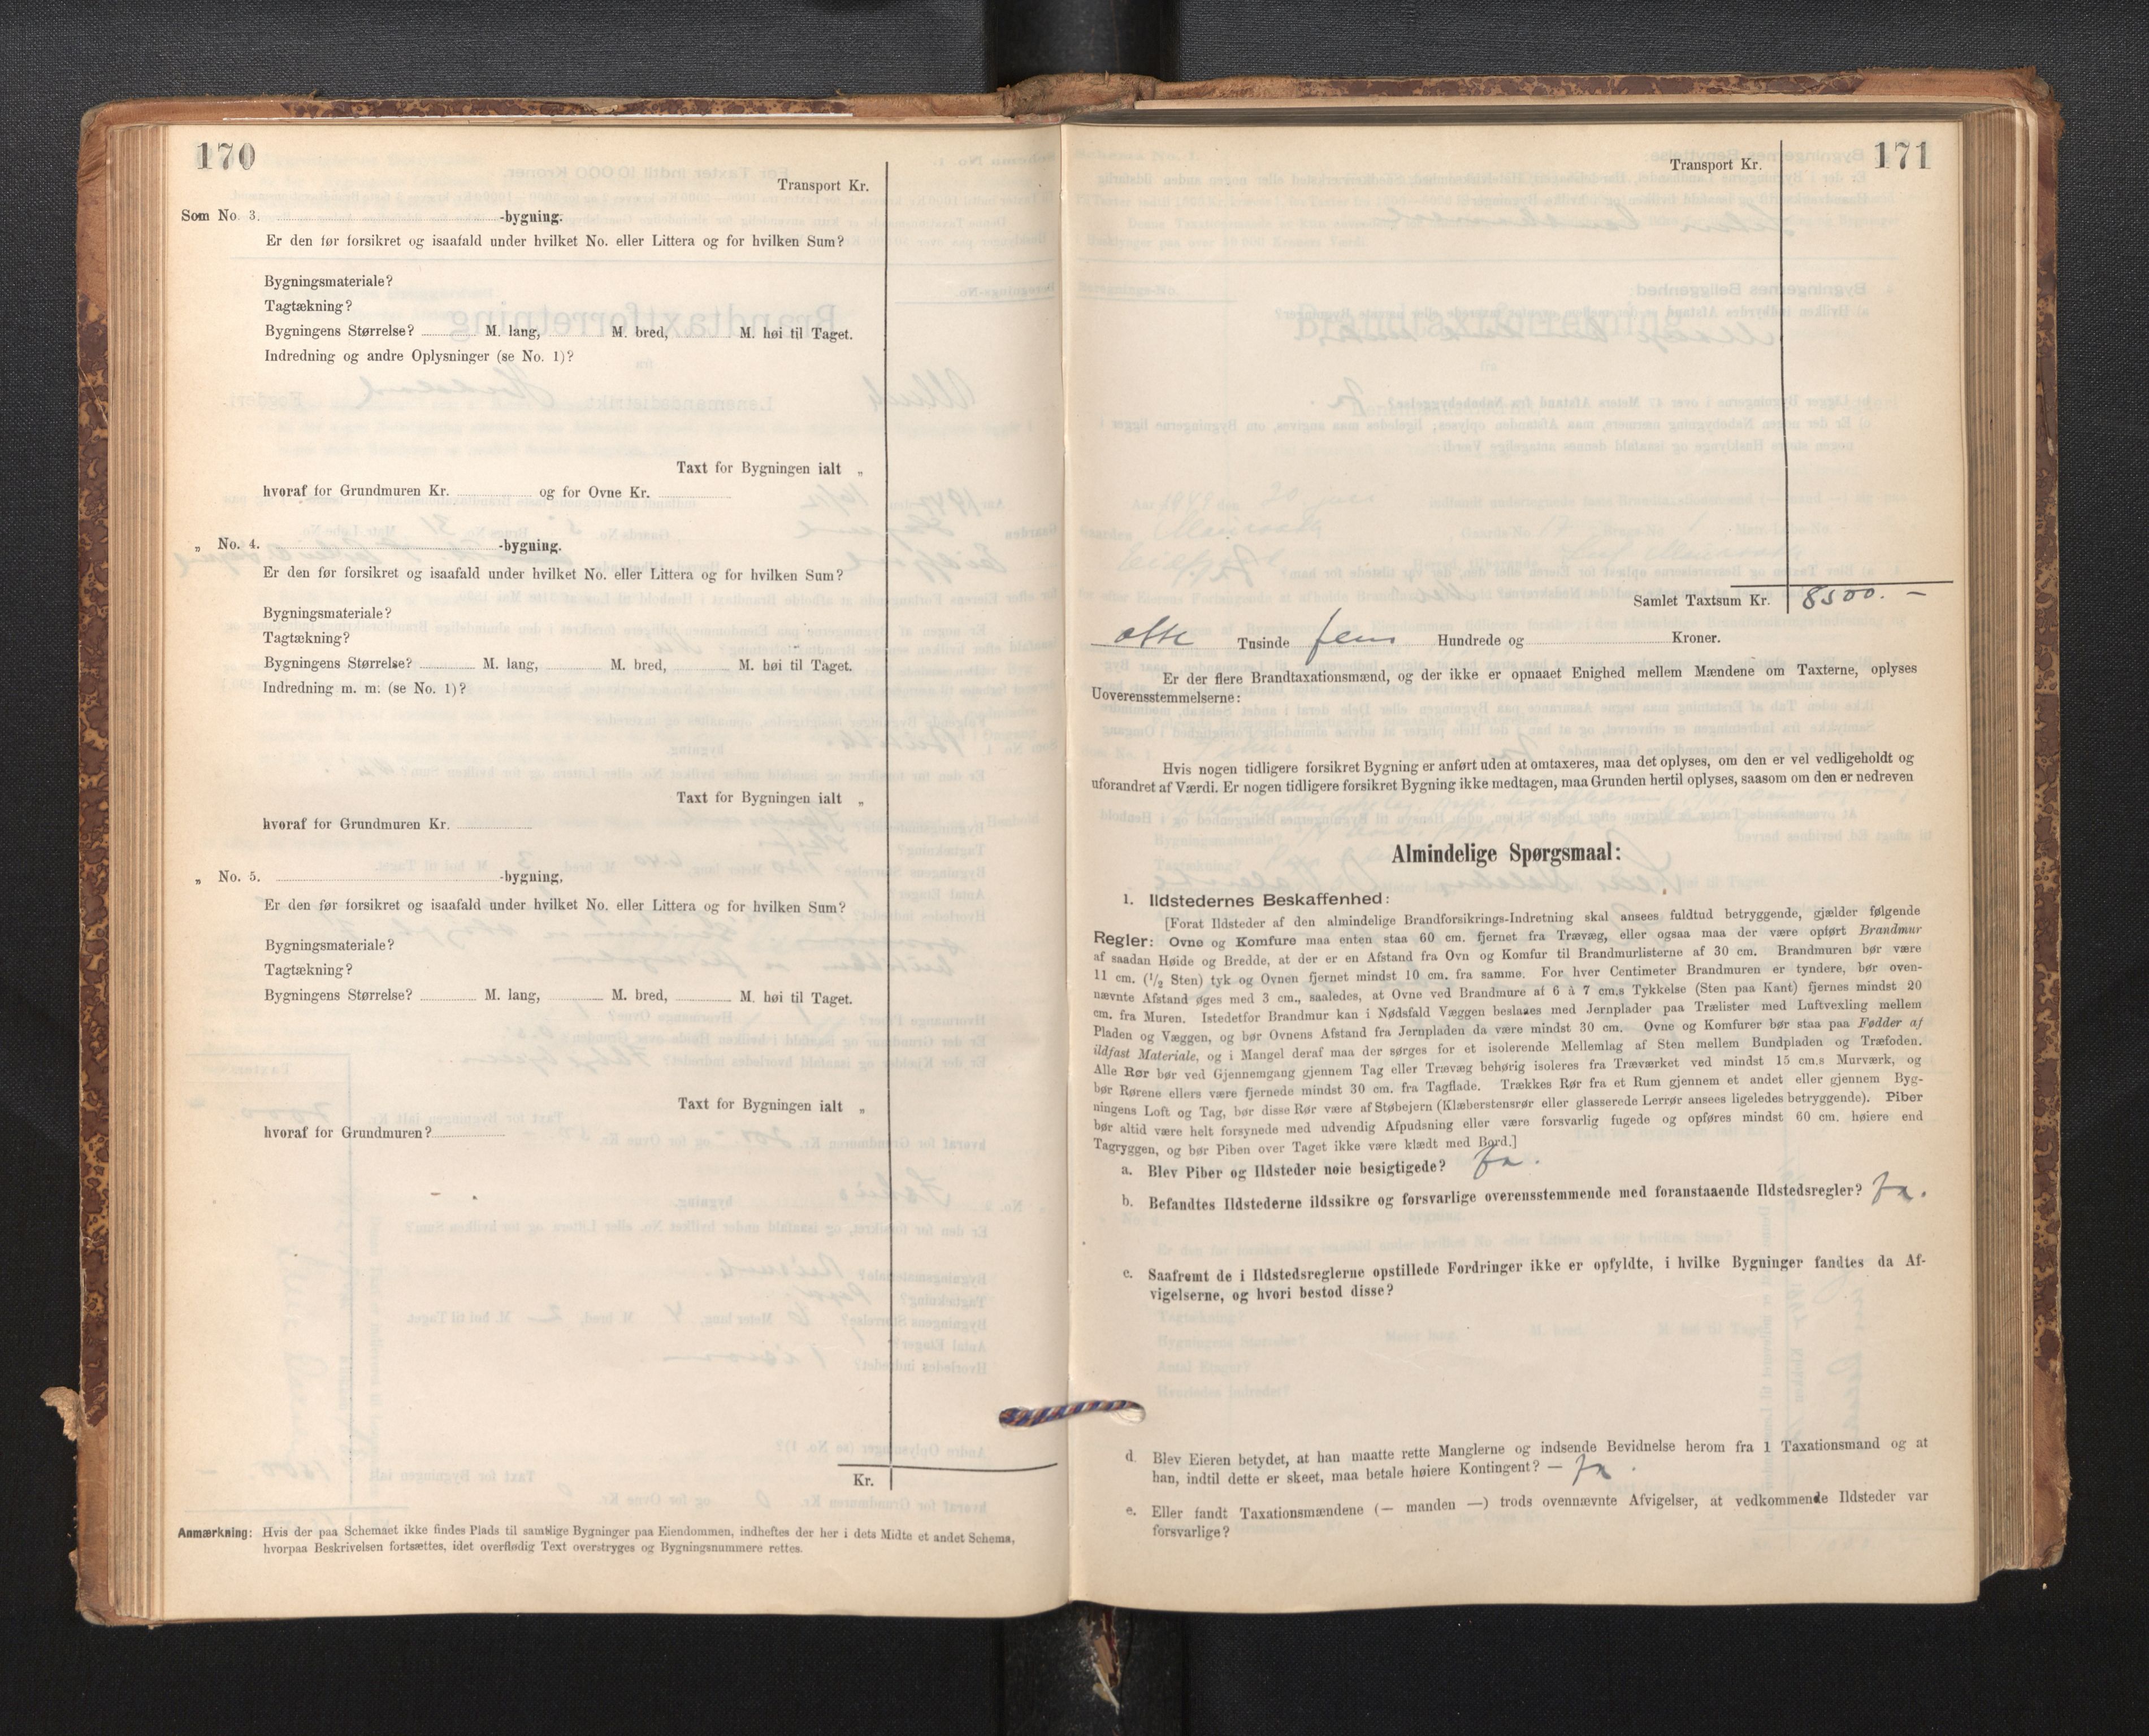 170
Transport Kr.
Som No. 3. -bygning.
Er den før forsikret og isaafald under hvilket No. eller Littera og for hvilken Sum?
Bygningsmateriale?
Tagtækning?
Bygningens Størrelse? M. lang, M. bred, M. høi til Taget.
Indredning og andre Oplysninger (se No. 1)?
Taxt for Bygningen ialt „
hvoraf for Grundmuren Kr. og for Ovne Kr.
„ No. 4. -bygning.
Er den før forsikret og isaafald under hvilket No. eller Littera og for hvilken Sum?
Bygningsmateriale?
Tagtækning?
Bygningens Størrelse? M. lang, M. bred, M. høi til Taget.
Indredning m. m: (se No. 1)?
Taxt for Bygningen ialt „
hvoraf for Grundmuren Kr.
„ No. 5. -bygning,
Er den før forsikret og isaafald under hvilket No. eller Littera og for hvilken Sum?
Bygningsmateriale?
Tagtækning?
Bygningens Størrelse? M. lang, M. bred, M. høi til Taget.
Taxt for Bygningen ialt „
hvoraf for Grundmuren?
Kr.
Anmærkning: Hvis der paa Schemaet ikke findes Plads til samtlige Bygninger paa Eiendommen, indheftes der her i dets Midte et andet Schema,
hvorpaa Beskrivelsen fortsættes, idet overflødig Text overstryges og Bygningsnummere rettes.
171
Transport Kr.
Samlet Taxtsum Kr. 8500. —
otte Tusinde fem Hundrede og Kroner.
Er der flere Brandtaxationsmænd, og der ikke er opnaaet Enighed mellem Mændene om Taxterne, oplyses
Uoverensstemmelserne:
Hvis nogen tidligere forsikret Bygning er anført uden at omtaxeres, maa det oplyses, om den er vel vedligeholdt og
uforandret af Værdi. Er nogen tidligere forsikret Bygning ikke medtagen, maa Grunden hertil oplyses, saasom om den er nedreven
Almindelige Spørgsmaal:
1. Ildstedernes Beskaffenhed:
[Forat Ildsteder af den almindelige Brandforsikrings-Indretning skal ansees fuldtud betryggende, gjælder følgende
Regler: Ovne og Komfure maa enten staa 60 cm. fjernet fra Trævæg, eller ogsaa maa der være opført Brandmur
af saadan Høide og Bredde, at der er en Afstand fra Ovn og Komfur til Brandmurlisterne af 30 cm. Brandmuren bør være
11 cm. (1/2 Sten) tyk og Ovnen fjernet mindst 10 cm. fra samme. For hver Centimeter Brandmuren er tyndere, bør oven-
nævnte Afstand øges med 3 cm., saaledes, at Ovne ved Brandmure af 6 à 7 cm.s Tykkelse (Sten paa Kant) fjernes mindst 20
cm. fra Muren. Istedetfor Brandmur kan i Nødsfald Væggen beslaaes med Jernplader paa Trælister med Luftvexling mellem
Pladen og Væggen, og bør Ovnens Afstand fra Jernpladen da være mindst 30 cm. Ovne og Komfurer bør staa paa Fødder af
ildfast Materiale, og i Mangel deraf maa der sørges for et isolerende Mellemlag af Sten mellem Bundpladen og Træfoden.
Alle Rør bør ved Gjennemgang gjennem Tag eller Trævæg behørig isoleres fra Træværket ved mindst 15 cm.s Murværk, og
bør Rørene ellers være fjernede mindst 30 cm. fra Tagflade. Trækkes Rør fra et Rum gjennem et andet eller gjennem Byg-
ningens Loft og Tag, bør disse Rør være af Støbejern (Klæberstensrør eller glasserede Lerrør ansees ligeledes betryggende). Piber
bør altid være helt forsynede med udvendig Afpudsning eller være forsvarlig fugede og opføres mindst 60 cm. høiere end
Tagryggen, og bør Piben over Taget ikke være klædt med Bord.]
a. Blev Piber og Ildsteder nøie besigtigede? Ja.
b. Befandtes Ildstederne ildssikre og forsvarlige overensstemmende med foranstaaende Ildstedsregler? Ja.
c. Saafremt de i Ildstedsreglerne opstillede Fordringer ikke er opfyldte, i hvilke Bygninger fandtes da Af-
vigelserne, og hvori bestod disse?
d. Blev Eieren betydet, at han maatte rette Manglerne og indsende Bevidnelse herom fra 1 Taxationsmand og at
han, indtil dette er skeet, maa betale høiere Kontingent? — Ja.
e. Eller fandt Taxationsmændene (— manden —) trods ovennævnte Afvigelser, at vedkommende Ildsteder var
forsvarlige?